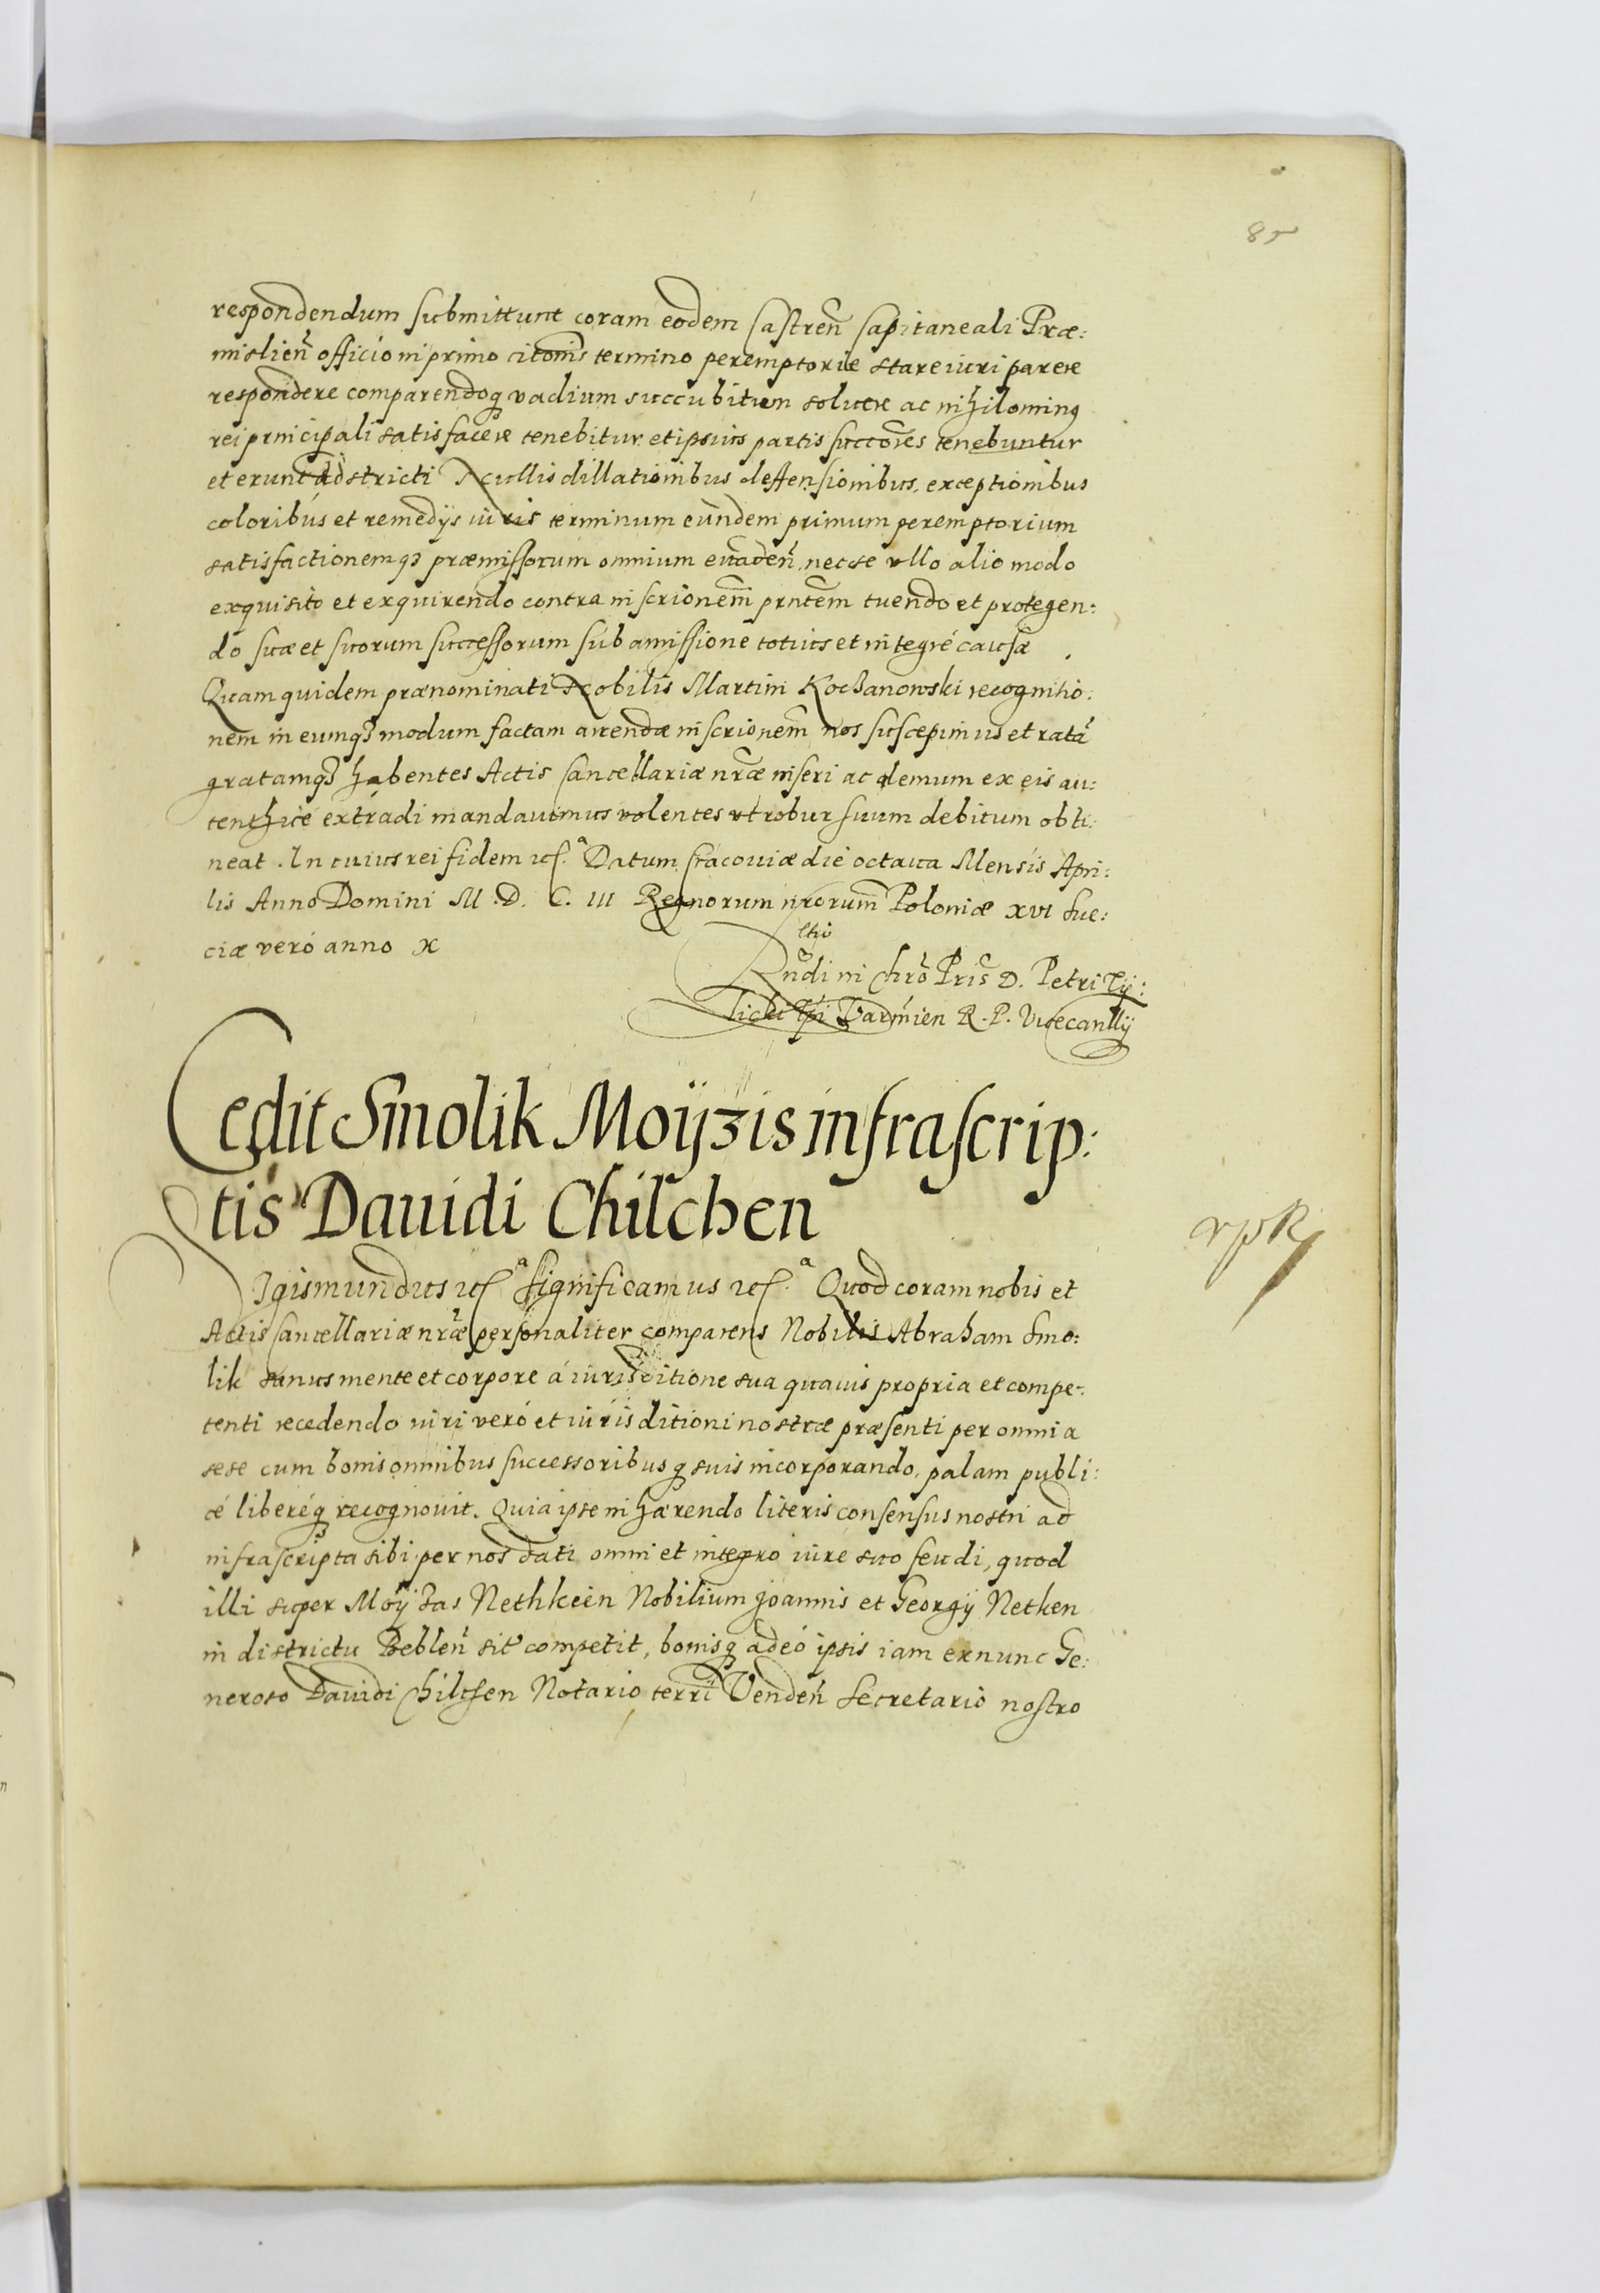 85
respondendum submittunt coram eodem Castreñ Capitaneali Præ:
mislieñ officio in primo citonis termino peremptorie stare iuri parere
respondere comparendoq vadium succubitum soluere ac nihilominq
rei principali satisfacere tenebitur et ipsius partis succores tenebuntur
et erunt adstricti Nullis dillationibus deffensionibus, exceptionibus
coloribus et remedijs iuris terminum eundem primum peremptorium
satisfactionemq præmissorum omnium euadeñ, nec se vllo alio modo
exquisito et exquirendo contra inscrionem prntem tuendo et protegen:
do suæ et suorum successorum sub amissione totius et integré causæ
Quam quidem prænominati Nobilis Martini Kochanowski recognitio:
nem in eumq modum factam arendæ inscrionem nos suscepimus et ratã
gratamq habentes Actis Cancellariæ nræ inseri ac demum ex eis au:
tenthicé extradi mandauimus volentes vt robur suum debitum obti:
neat. In cuius rei fidem etc.ª Datum Cracouiæ die octaua Mensis Apri:
lis Anno Domini M. D. C. III Regnorum nrorum Poloniæ XVI Sue:
ciæ veró anno X
Rñdi in Chrõ Pris D. Petri Tÿ:
licki Epi Varmien R. P. Vicecanllÿ
Cedit Smolik Moÿzis infrascrip:
tis Dauidi Chilchen
Sigismundus etcª significamus etc.ª Quod coram nobis et
Actis Cancellariæ nræ personaliter comparens Nobilis Abraham Smo:
lik sanus mente et corpore á iurisditione sua quauis propria et compe:
tenti recedendo iuri veró et iurisditioni nostræ præsenti per omnia
sese cum bonis omnibus successoribusq suis incorporando, palam publi:
cé liberéq recognouit. Quia ipse inhærendo literis consensus nostri ad
infrascripta sibi per nos dati omni et integro iure suo feudi, quod
illi super Moÿzas Nethkeen Nobilium Joannis et Georgÿ Netken
in districtu Zebleñ sit competit, bonisq adeó ipsis iam exnunc Ge:
neroso Dauidi Chilchen Notario terri Vendeñ Secretario nostro